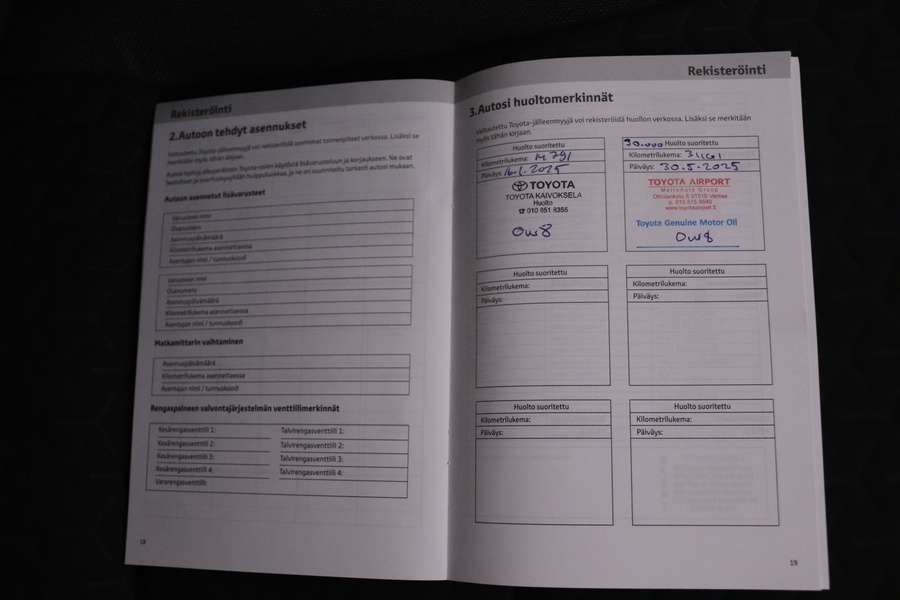 Rekisteröinti
2.Autoon tehdyt asennukset
Valtuutettu Toyota-jälleenmyyjä voi rekisteröidä useimmat toimenpiteet verkossa. Lisäksi se
merkitään myös tähän kirjaan.
Autosi hyötyy alkuperäisten Toyota-osien käytöstä lisävarusteluun ja korjaukseen. Ne ovat
laadultaan ja suorituskyvyltään huippuluokkaa, ja ne on suunniteltu tarkasti autosi mukaan.
Autoon asennetut lisävarusteet
Varusteen nimi
Osanumero
Asennuspäivämäärä
Kilometrilukema asennettaessa
Asentajan nimi / tunnuskoodi
Varusteen nimi
Osanumero
Asennuspäivämäärä
Kilometrilukema asennettaessa
Asentajan nimi / tunnuskoodi
Matkamittarin vaihtaminen
Asennuspäivämäärä
Kilometrilukema asennettaessa
Asentajan nimi / tunnuskoodi
Rengaspaineen valvontajärjestelmän venttiilimerkinnät
Kesärengasventtiili 1:
Talvirengasventtiili 1:
Kesärengasventtiili 2:
Talvirengasventtiili 2:
Kesärengasventtiili 3:
Talvirengasventtiili 3:
Kesärengasventtiili 4:
Talvirengasventtiili 4:
Vararengasventtiili:
18
Rekisteröinti
3.Autosi huoltomerkinnät
Valtuutettu Toyota-jälleenmyyjä voi rekisteröidä huollon verkossa. Lisäksi se merkitään
myös tähän kirjaan.
Huolto suoritettu
Kilometrilukema:
Päiväys:
TOYOTA
TOYOTA KAIVOKSELA
Huolto
☎ 010 851 8355
0w8
30.000 Huolto suoritettu
Kilometrilukema:
Päiväys: 30.5-2025
TOYOTA AIRPORT
MetroAuto Group
Ohtolankatu 5 01510 Vantaa
p. 010 615 8640
www.toyotaairport.fi
Toyota Genuine Motor Oil
0w8
Huolto suoritettu
Kilometrilukema:
Päiväys:
Huolto suoritettu
Kilometrilukema:
Päiväys:
Huolto suoritettu
Kilometrilukema:
Päiväys:
Huolto suoritettu
Kilometrilukema:
Päiväys:
19